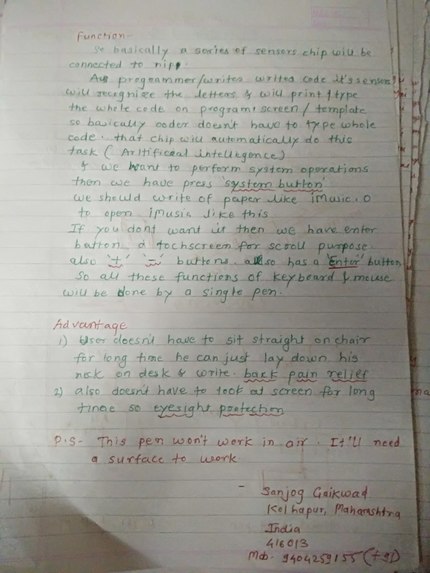 Function-
So basically a series of sensors chip will be
connected to nip.
As programmer/writer writed code it's sensors
will recognize the letters & will print/type
the whole code on program screen/template
so basically coder doesn't have to type whole
code. that chip will automatically do this
task (Artificeal intelligence)
If we want to perform system operations
then we have press 'system button'
we should write of paper like imusic.O
to open imusic like this
If you dont want it then we have enter
button, a tochscreen for scroll purpose
also '+' '-' buttons. also has a 'Enter' button
So all these functions of keyboard & mouse
will be done by a single pen.
Advantage
1) User doesn't have to sit straight on chair
for long time he can just lay down his
neck on desk & write. back pain relief
2) also doesn't have to look at screen for long
time so eyesight protection
P.S- This pen won't work in air. It'll need
a surface to work
- Sanjog Gaikwad
Kolhapur, Maharashtra
India
416013
Mob- 9404259155 (+91)